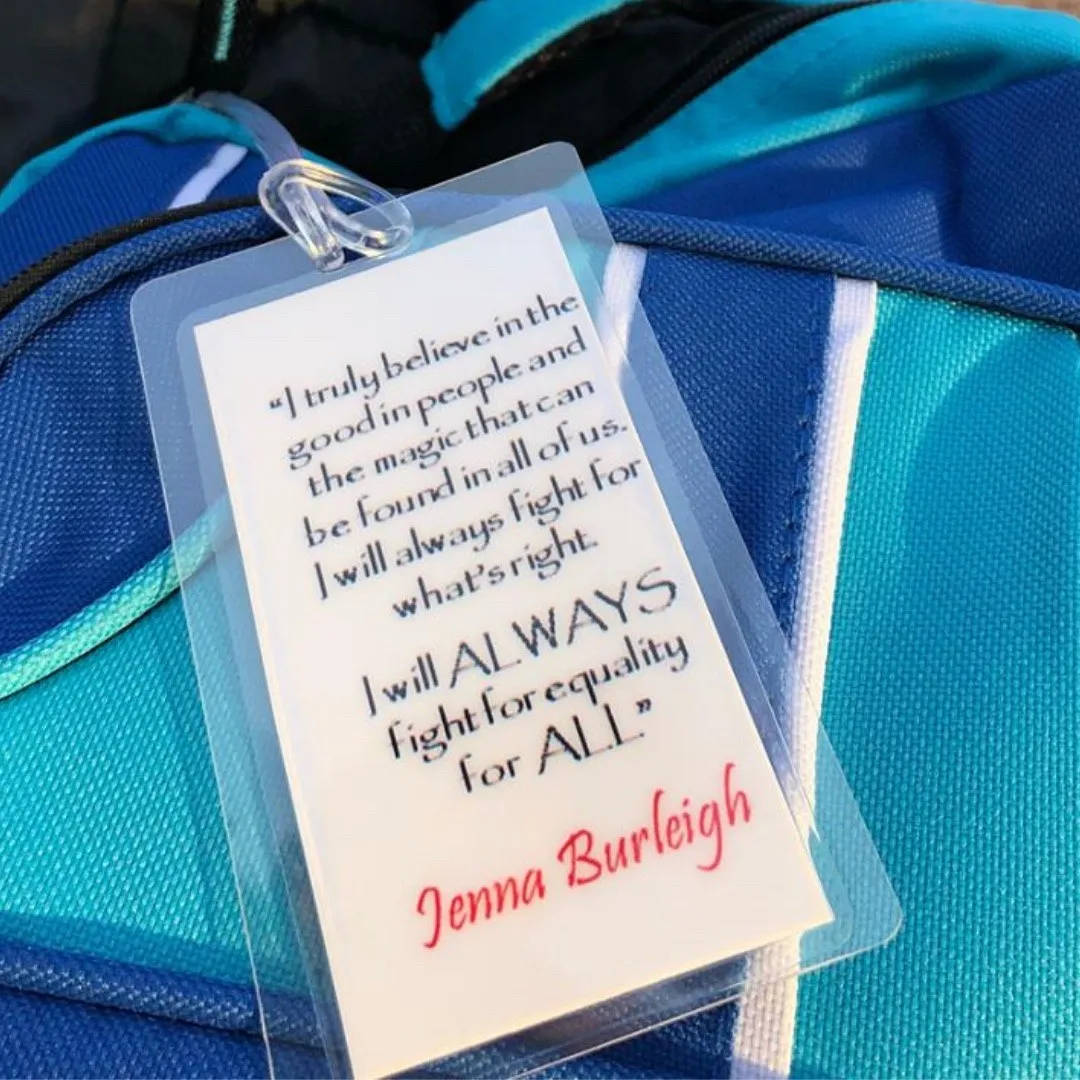 “I truly believe in the
good in people and
the magic that can
be found in all of us.
I will always fight for
what's right.
I will ALWAYS
fight for equality
for ALL”
Jenna Burleigh